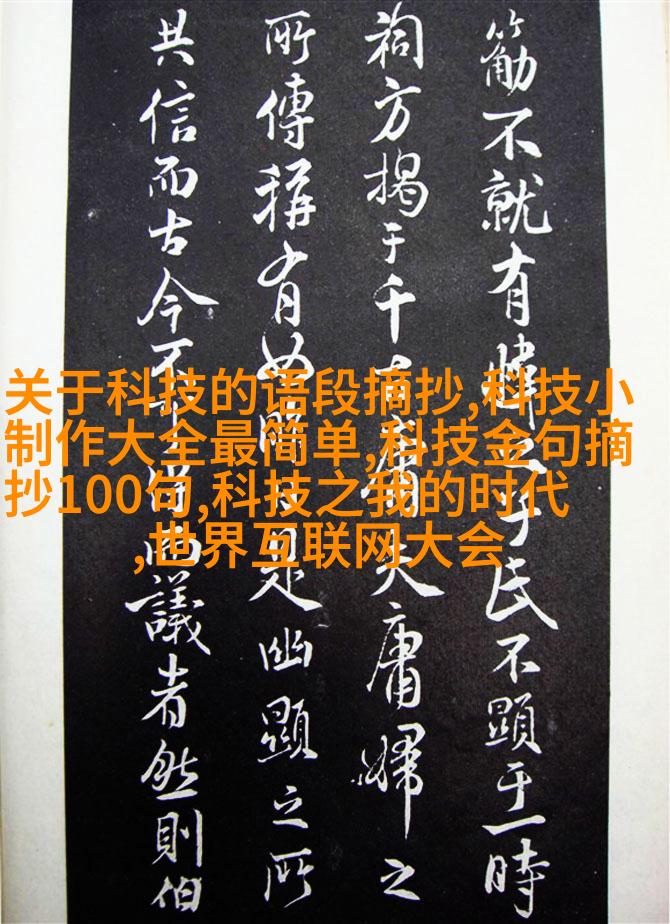 不就有乎氏不顯于一時
祠方揭于千古庸夫庸婦之
所傳稱有如是幽顯之所
共信而古今不得而議者然則伯
关于科技的语段摘抄,科技小
制作大全最简单,科技金句摘
抄100句,科技之我的时代
,世界互联网大会